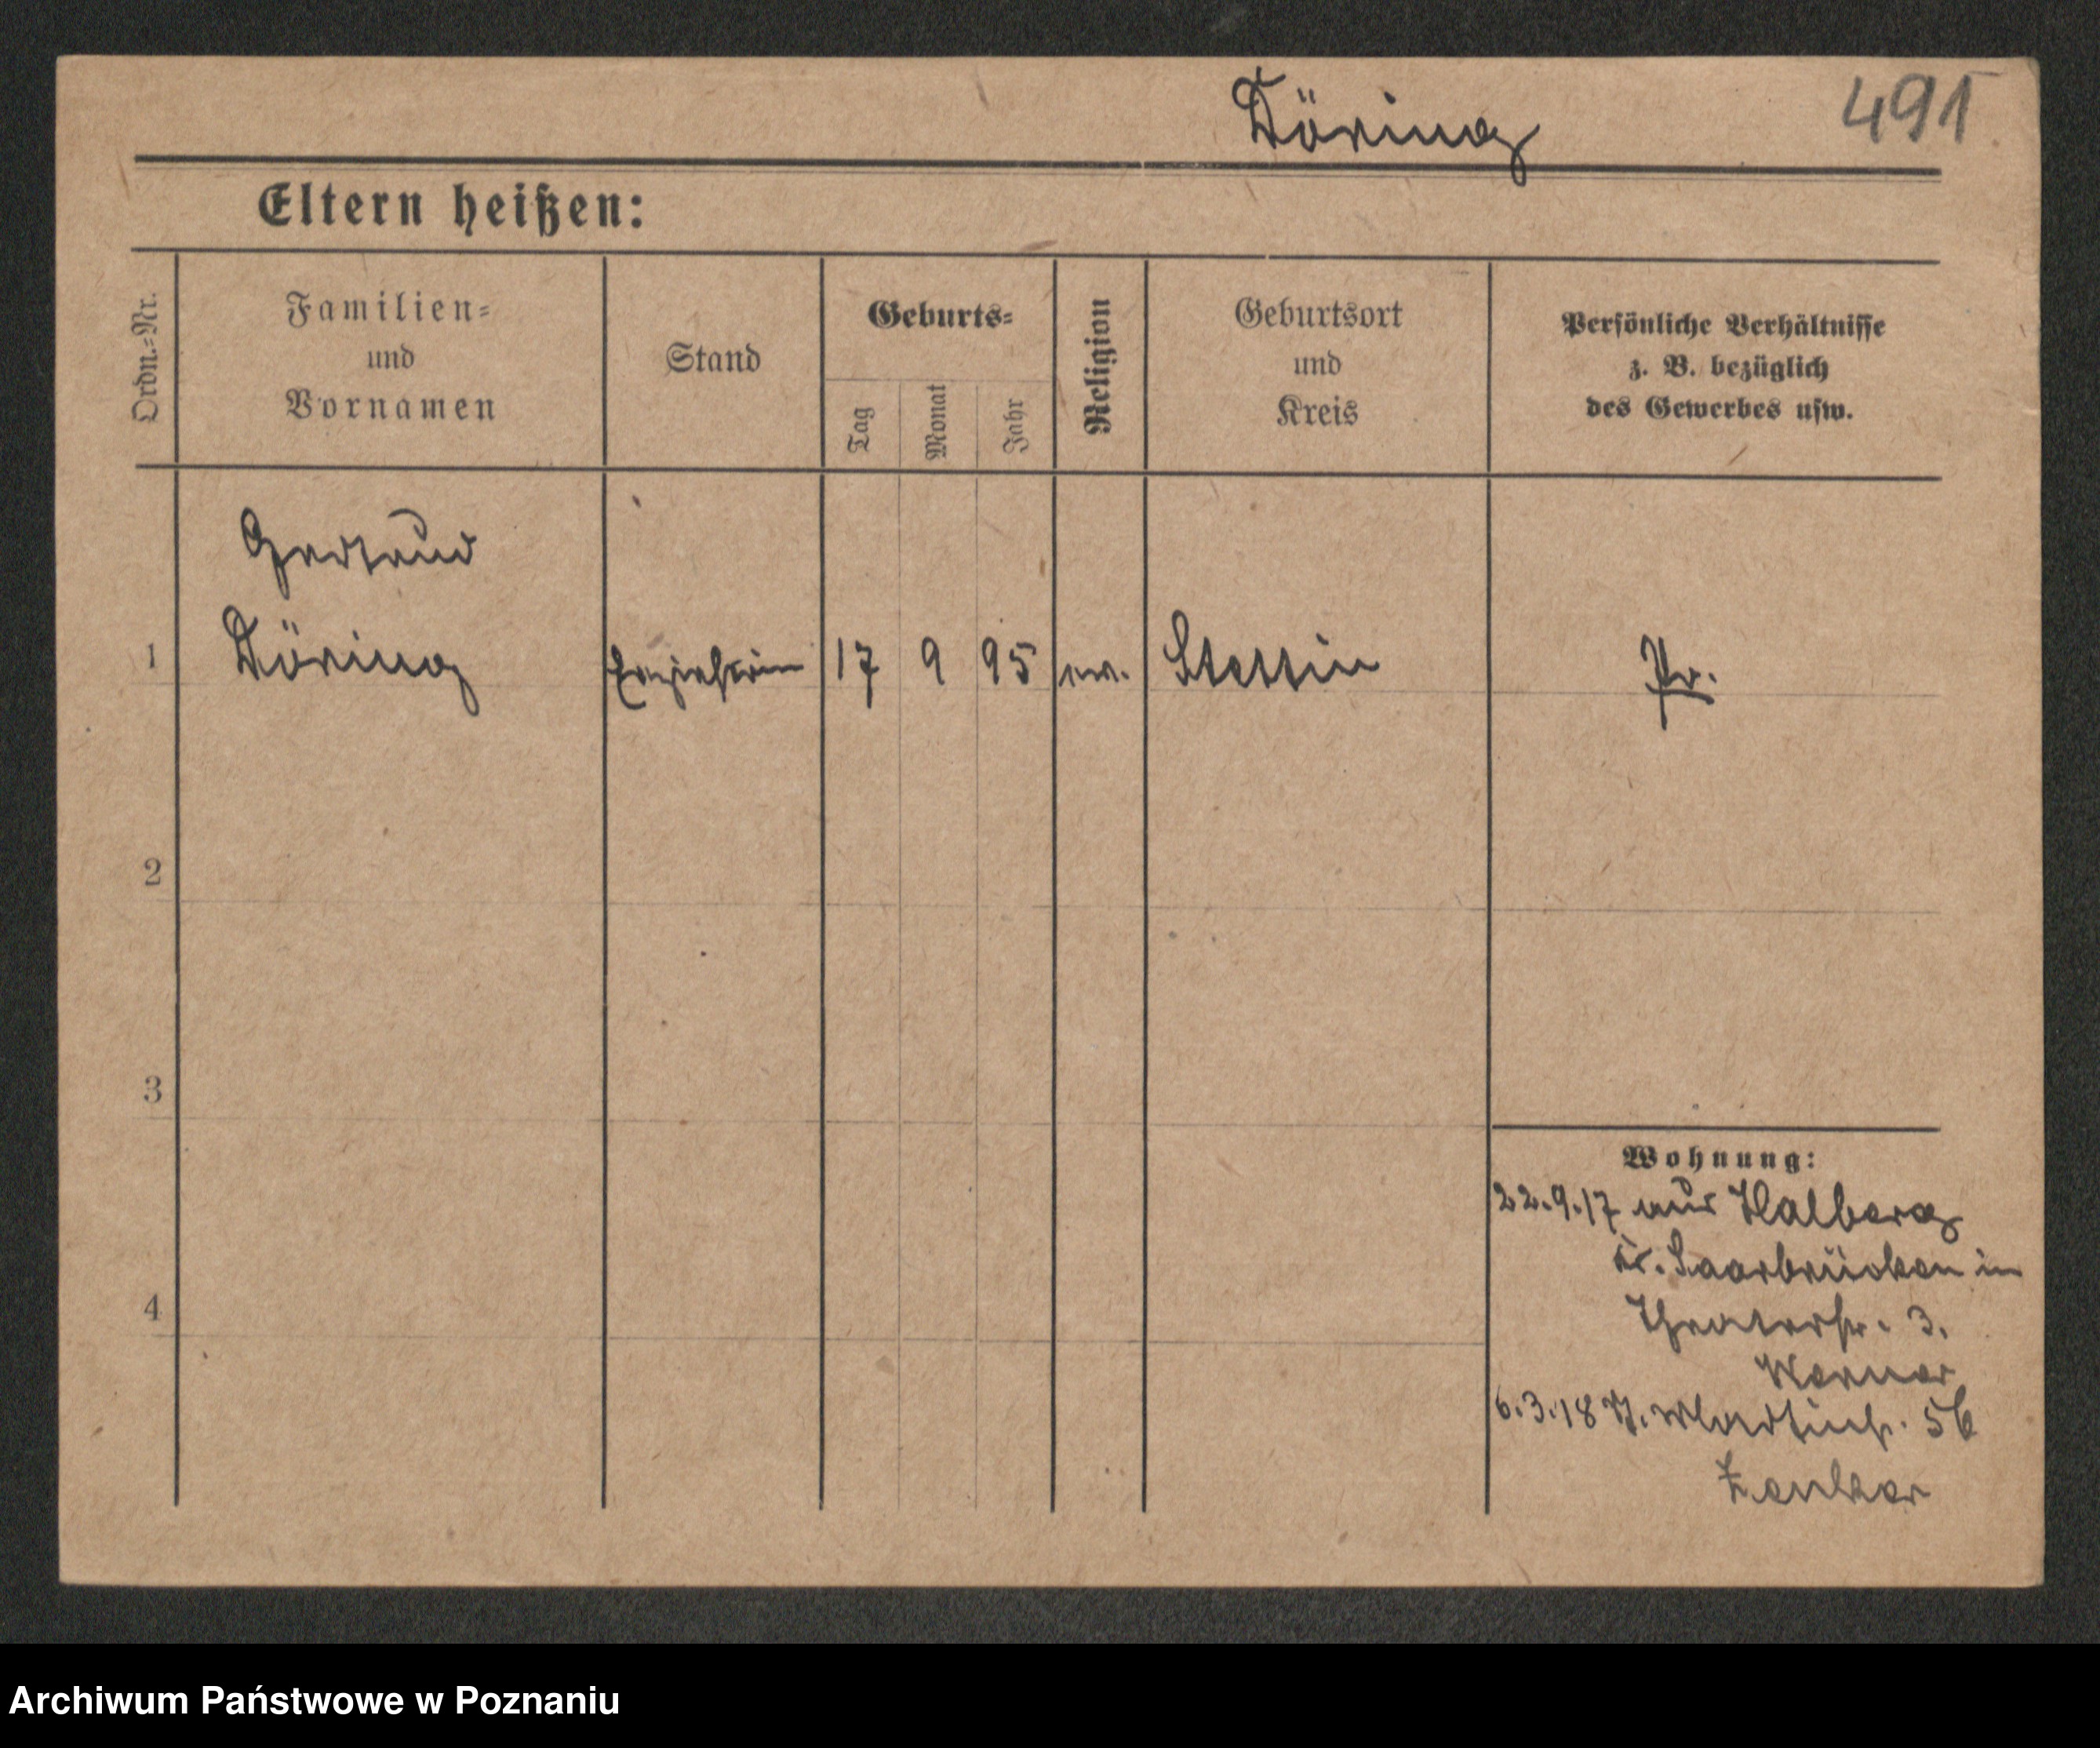 Döring 491
Eltern heißen:
Ordn.-Nr.
Familien-
und
Vornamen
Stand
Geburts-
Tag
Monat
Jahr
Religion
Geburtsort
und
Kreis
Persönliche Verhältnisse
z. B. bezüglich
des Gewerbes usw.
Gertrud
1 Döring Erzieherin 17 9 95 ev. Stettin Pr.
2
3
4
Wohnung:
22.9.17 aus Halberg
Kr. Saarbrücken in
Theaterstr. 3.
Werner
6.3.18